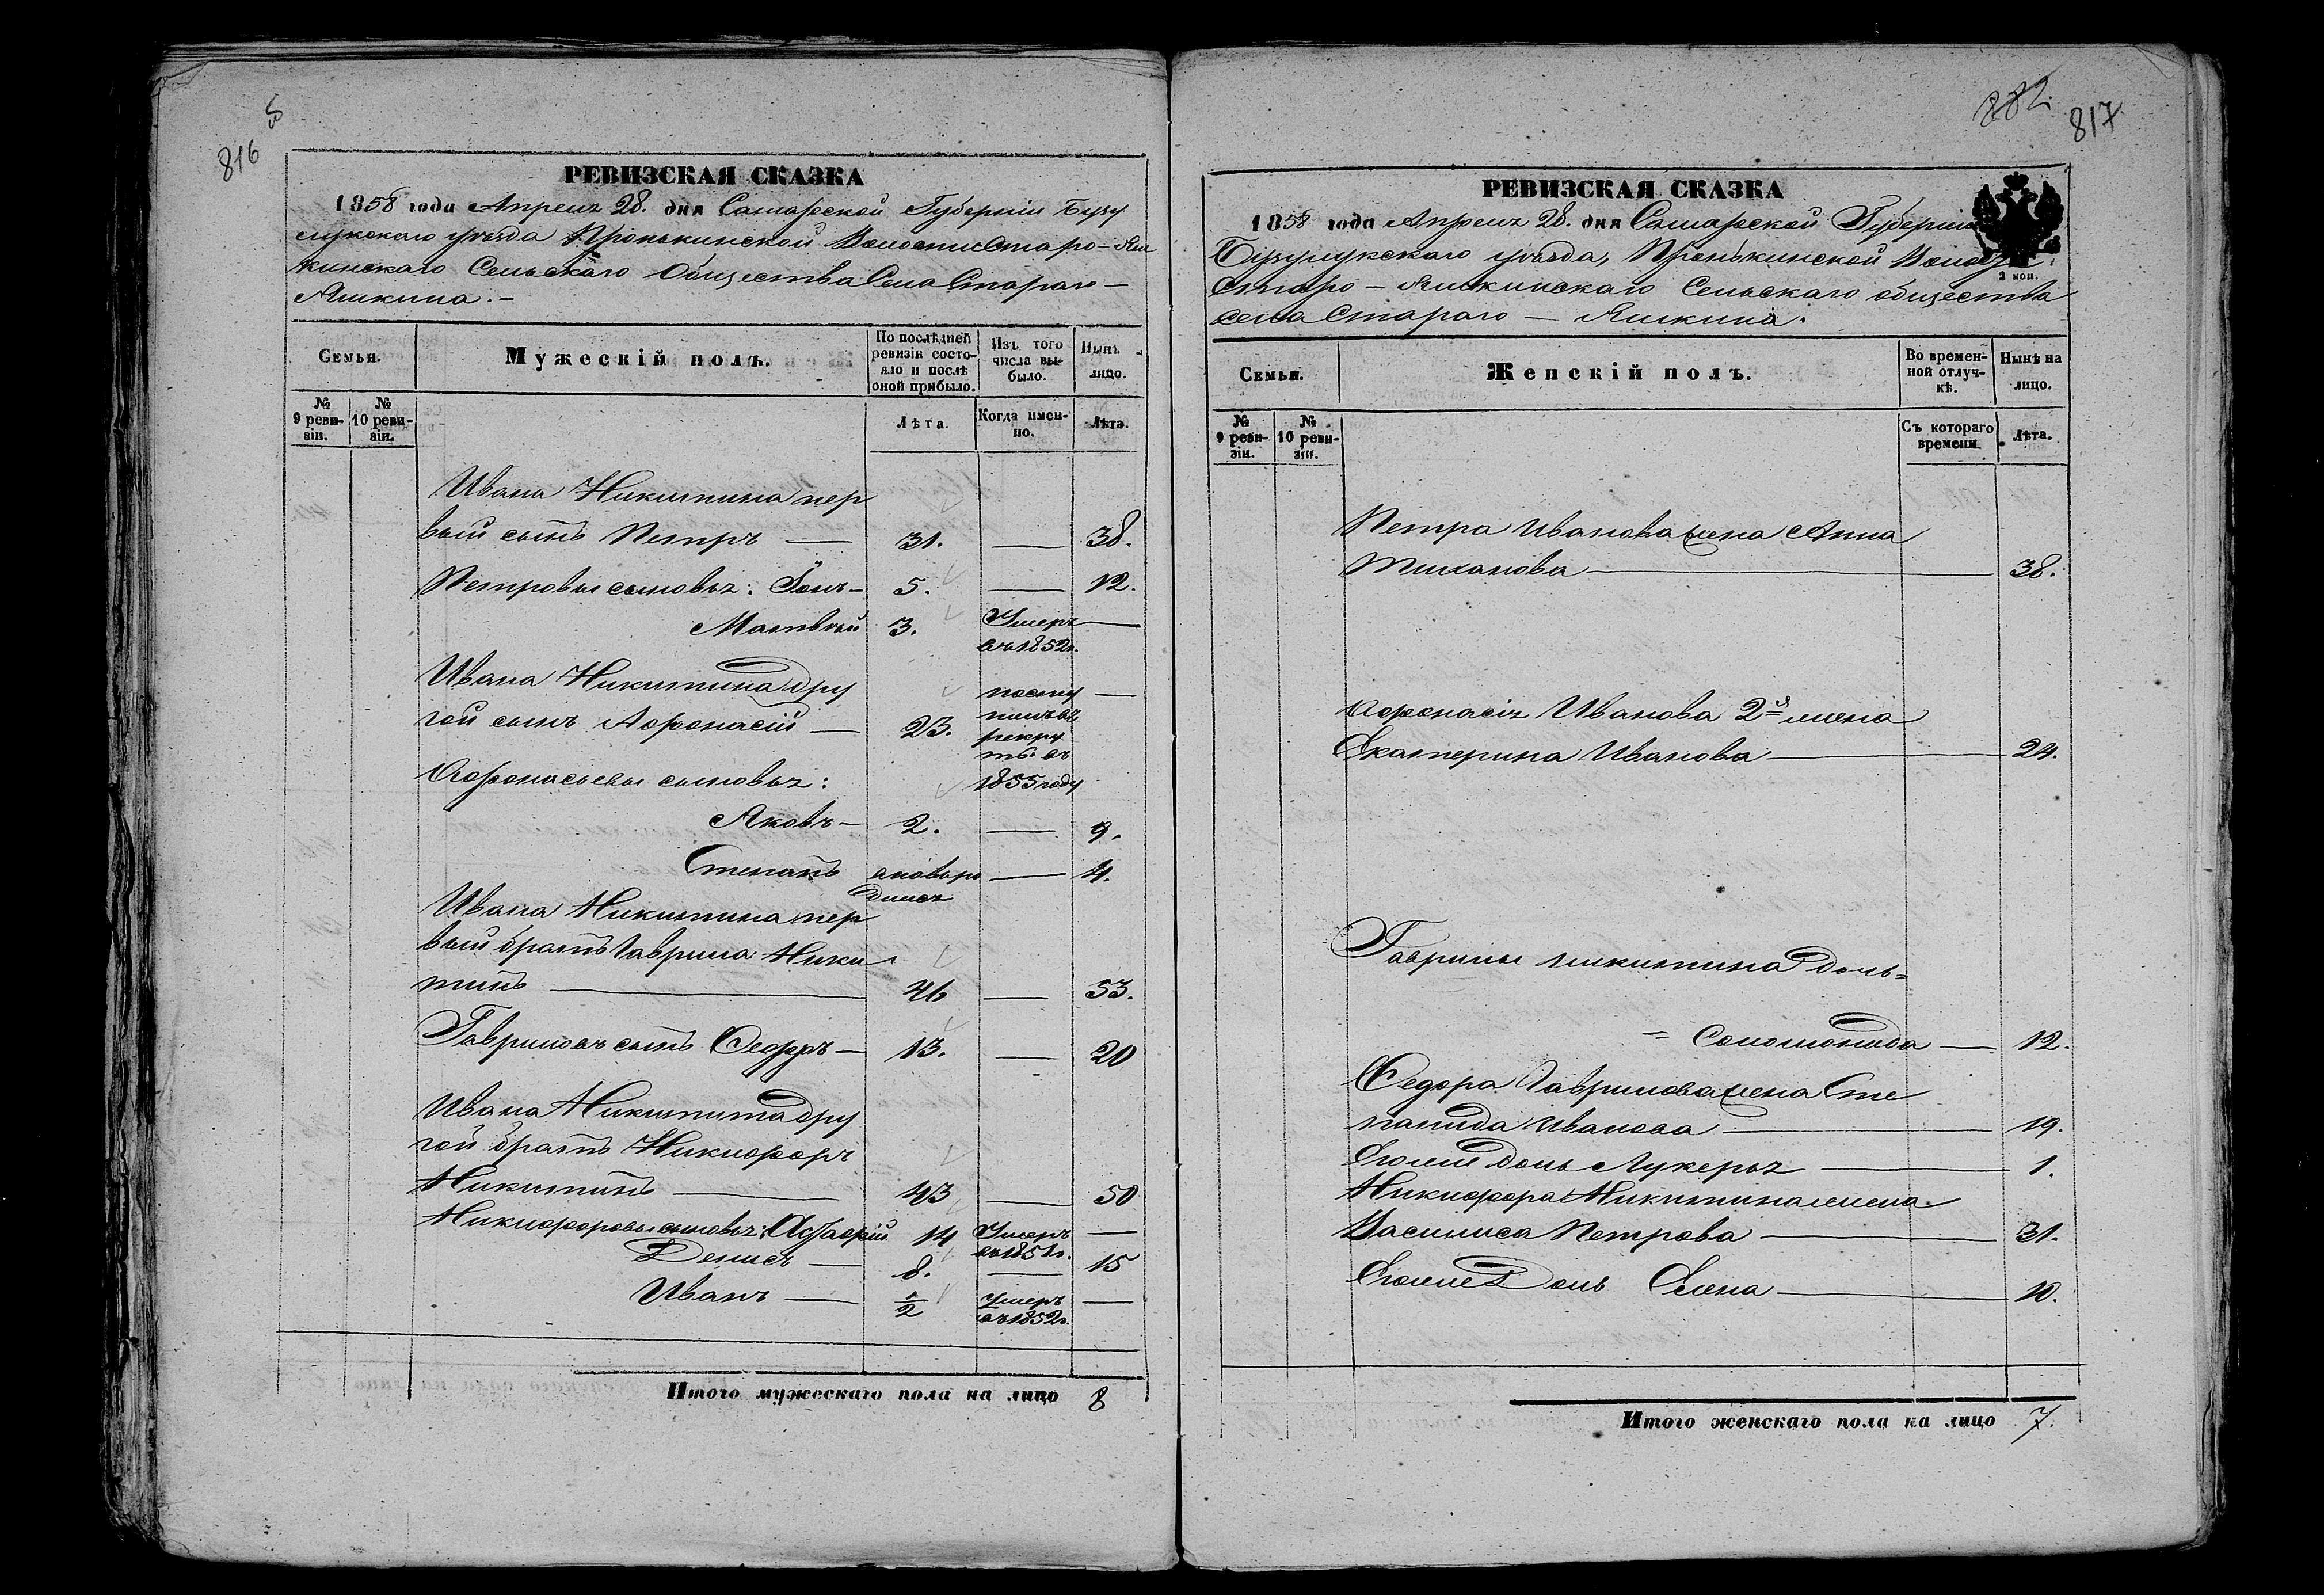 816
РЕВИЗСКАЯ СКАЗКА
1858 года Апреля 28. дня Самарской Губерніи Бузу
лукскаго уѣзда Пронькинской Волости Старо-Яш
кинскаго Сельскаго Общества Села Стараго —
Яшкина. –
Семьи.
Мужескій полъ.
По послѣдней ревизіи состояло и послѣ оной прибыло.
Изъ того числа выбыло.
Нынѣ на лицо.
№ 9 ревизіи.
№ 10 ревизіи.
Лѣта.
Когда именно.
Лѣта.
Ивана Никитина пер
вый сынъ Петръ — 31. — 38.
Петровы сыновья: 5. — 12.
Матвѣй 3. Умеръ —
въ 1852г.
Ивана Никитина дру посту —
гой сынъ Афонасій — 23. пилъ въ
рекру
ты въ
Афонасьевы сыновья: 1855 году
Яковъ — 2. — 9.
Степанъ вновьро — 4.
дился
Ивана Никитина пер
вый братъ Гаврила Ники
тинъ — 46 — 53.
Гавриловъ сынъ Федоръ — 13. — 20
Ивана Никитина дру
гой братъ Никифоръ
Никитинъ — 43 — 50
Никифоровы сыновья: 14 Умеръ —
въ 1851г.
Денисъ — 8. — 15
Иванъ — 1/2 Умеръ —
въ 1852г.
Итого мужескаго пола на лицо 8
882
817
РЕВИЗСКАЯ СКАЗКА
1858 года Апреля 28. дня Самарской Губерніи
Бузулукскаго уѣзда, Пронькинской Волости
2 коп.
Старо – Яшкинскаго Сельскаго общества
села Стараго — Яшкина.
Семьи.
Женскій полъ.
Во временной отлучкѣ.
Нынѣ на лицо.
№ 9 ревизіи.
№ 10 ревизіи.
Съ котораго времени.
Лѣта.
Петра Иванова жена Анна
Тиханова — 38.
Афонасія Иванова 2я жена
Екатерина Иванова — 24.
Гаврилы Никитина дочь=
= Соломонида — 12.
Федора Гаврилова жена Сте
панида Иванова — 19.
Егоже дочь Лукерья — 1.
Никифора Никитина жена
Василиса Петрова — 31.
Егоже Дочь Елена — 10.
Итого женскаго пола на лицо 7.